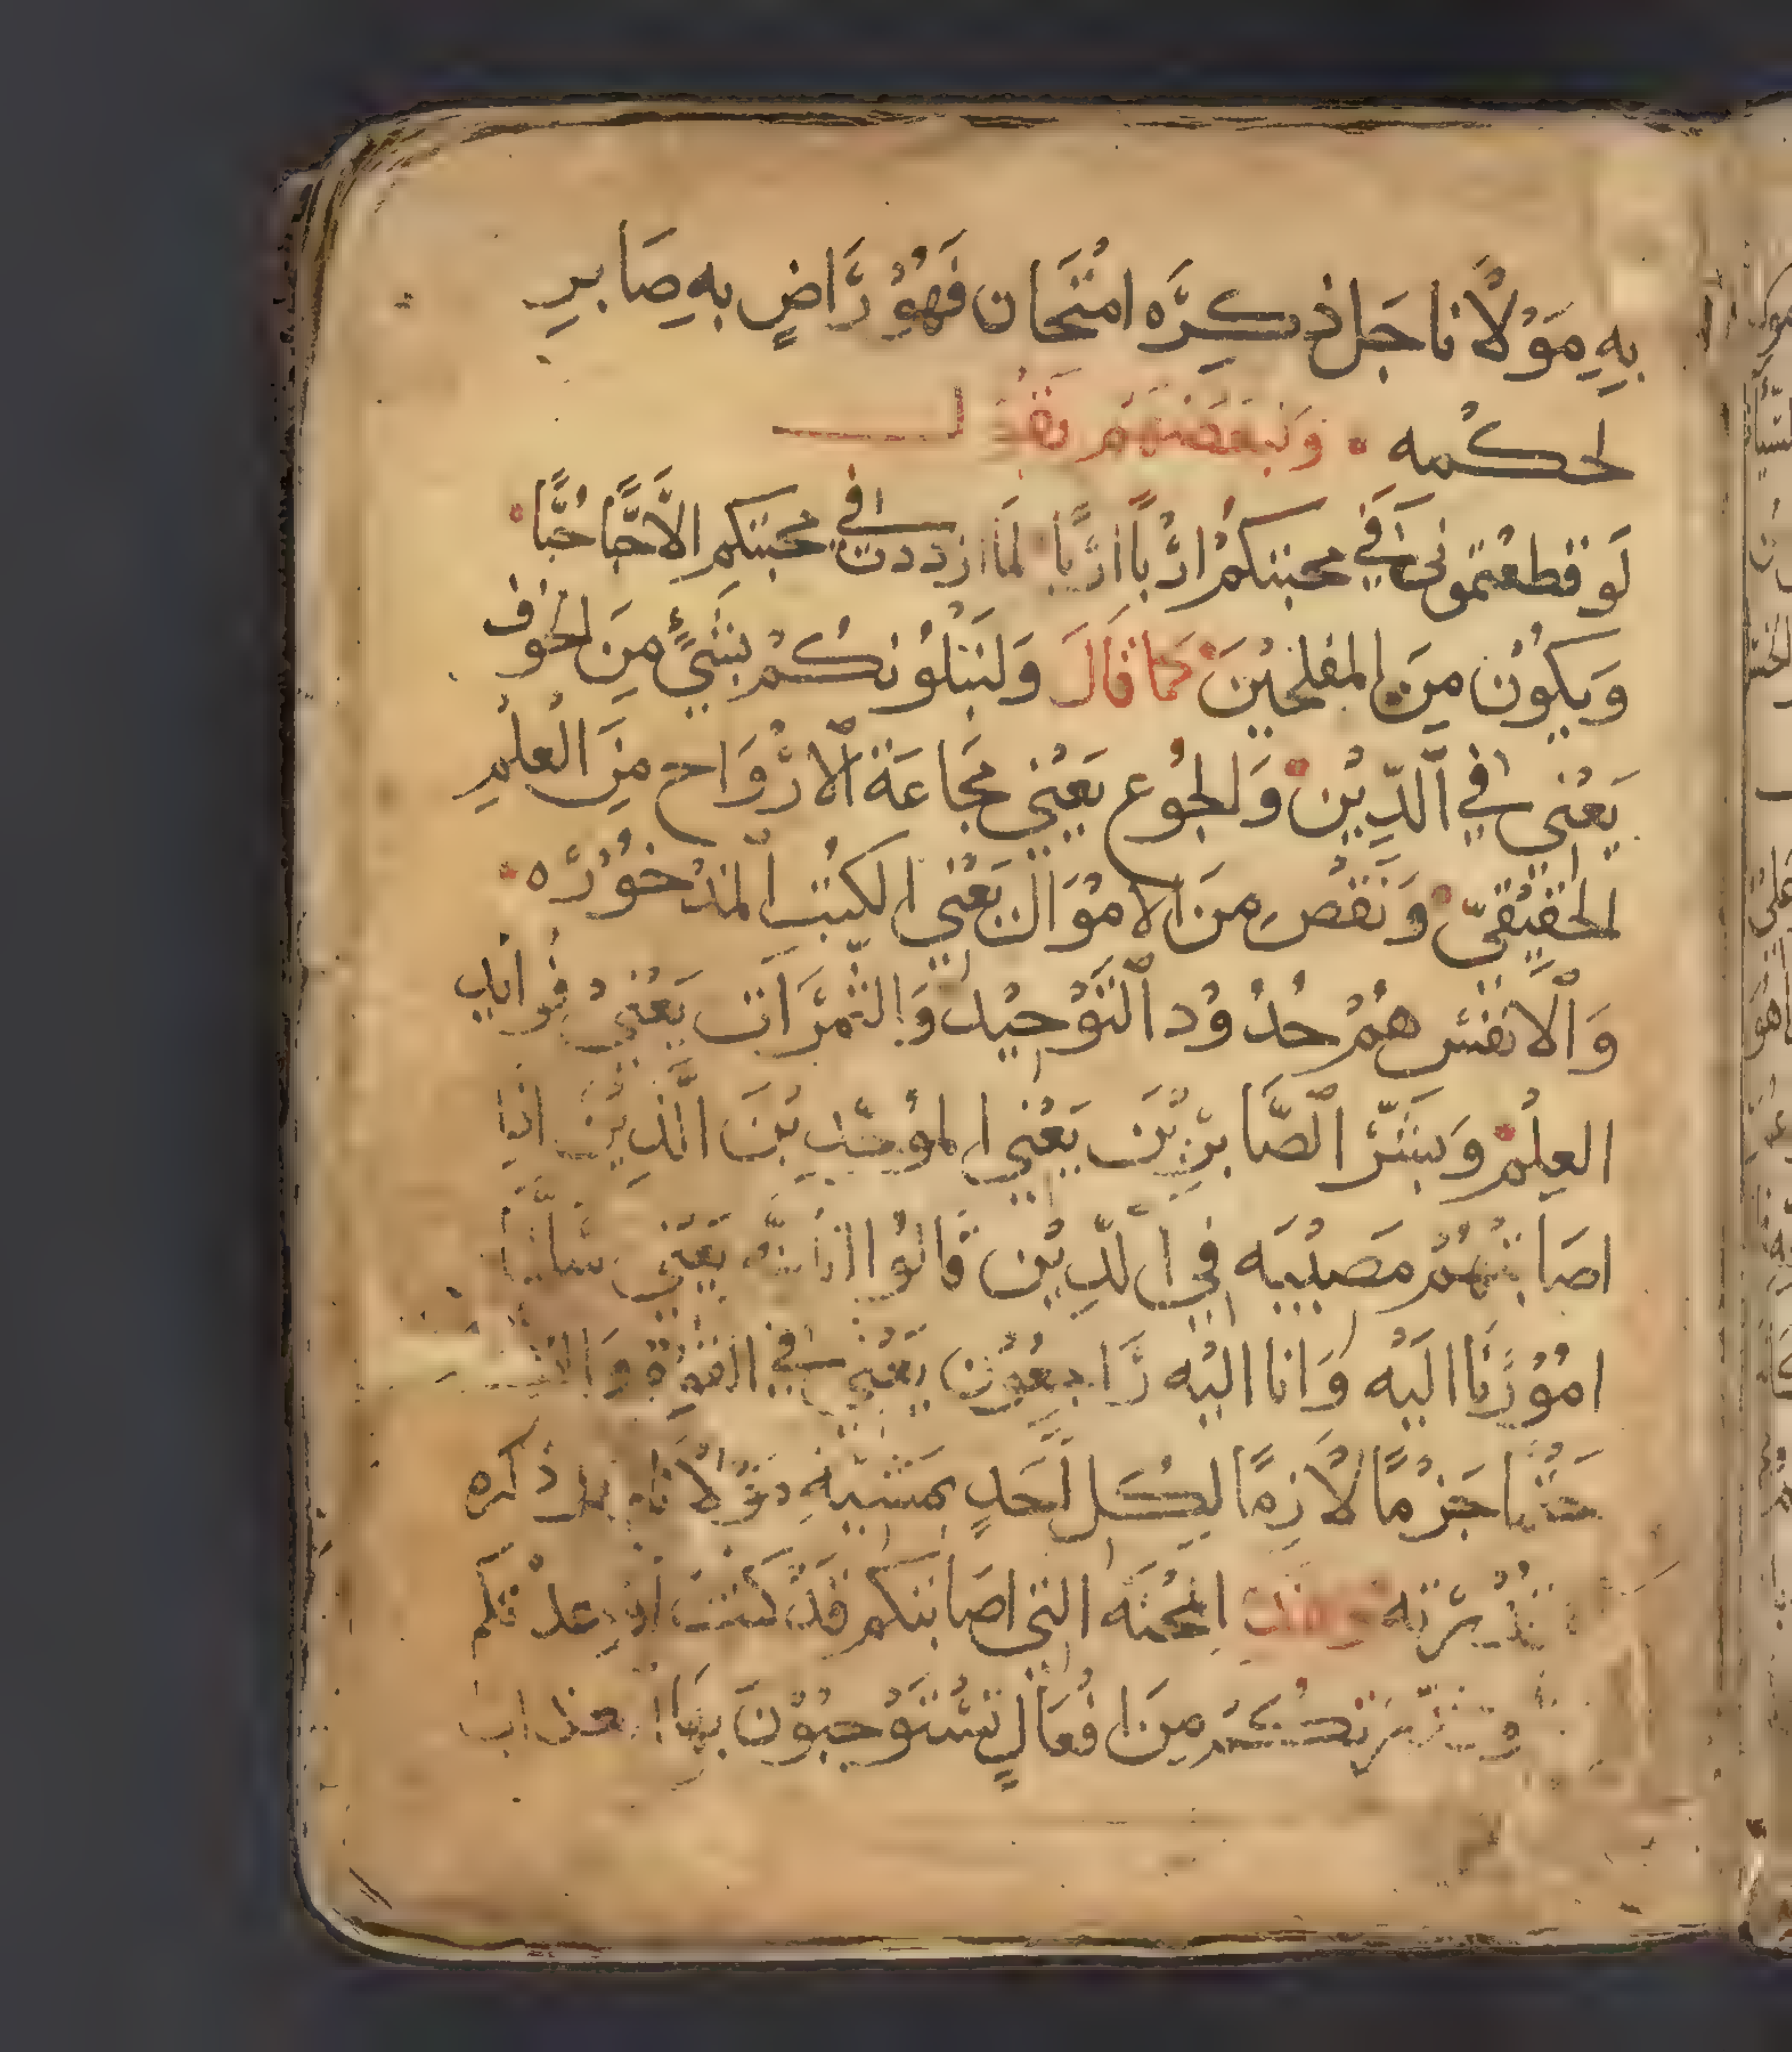 بِهِ مَوْلَانَا جَل ذِكرَه امْتَحَان فَهُوَ رَاضٍ بِهِ صَابرٍ
لحكْمه . وَبَعضهم يَقُول
لَو قطعْتمونى فِي محبتكم ارْبًا ارْبًا لَمَا ازددت فِي محبتكم الَّا حُبًّا
وَيكُوْن مِنَ المفلحِيْنَ كَمَا قَالَ وَلَنَبْلُوَنكُمْ بِشَيْءٍ مِنَ الخَوْف
يَعْنِي فِي الدِّيْن وَالجُوْع يَعْنِي مَجَاعَة الْارْوَاح مِنَ الْعلْمِ
الحَقِيْقِيّ وَنَقْص مِنَ الامْوَال يَعْنِي الكُتب المَدْخُوْرَه
وَالْانفُس هُمْ حُدُوْد التَوْحِيْد وَالثَّمَرَات يَعْنِي فوايد
العِلْم وَبَشّر الصَّابرِيْنَ يَعْنِي الموَحّدِيْنَ الَّذِيْنَ اذا
اصَابَتْهُمْ مَصيْبَه فِي الدِّيْن قَالُوا انا لله يَعْنِي سَلَّمْنَا
امُوْرَنَا الَيْه وَانا اليْه رَاجعُوْن يَعْنِي فِي
حَتْمًا جَزْمًا لَازِمًا لِكُل احَدٍ بمَشيّة مَوْلَانَا جل ذكره
المحْنَه التِي اصَابتكم قَدْ كنتُ
مِنَ افْعَالٍ تَسْتَوْجبُوْنَ بِهَا العذاب